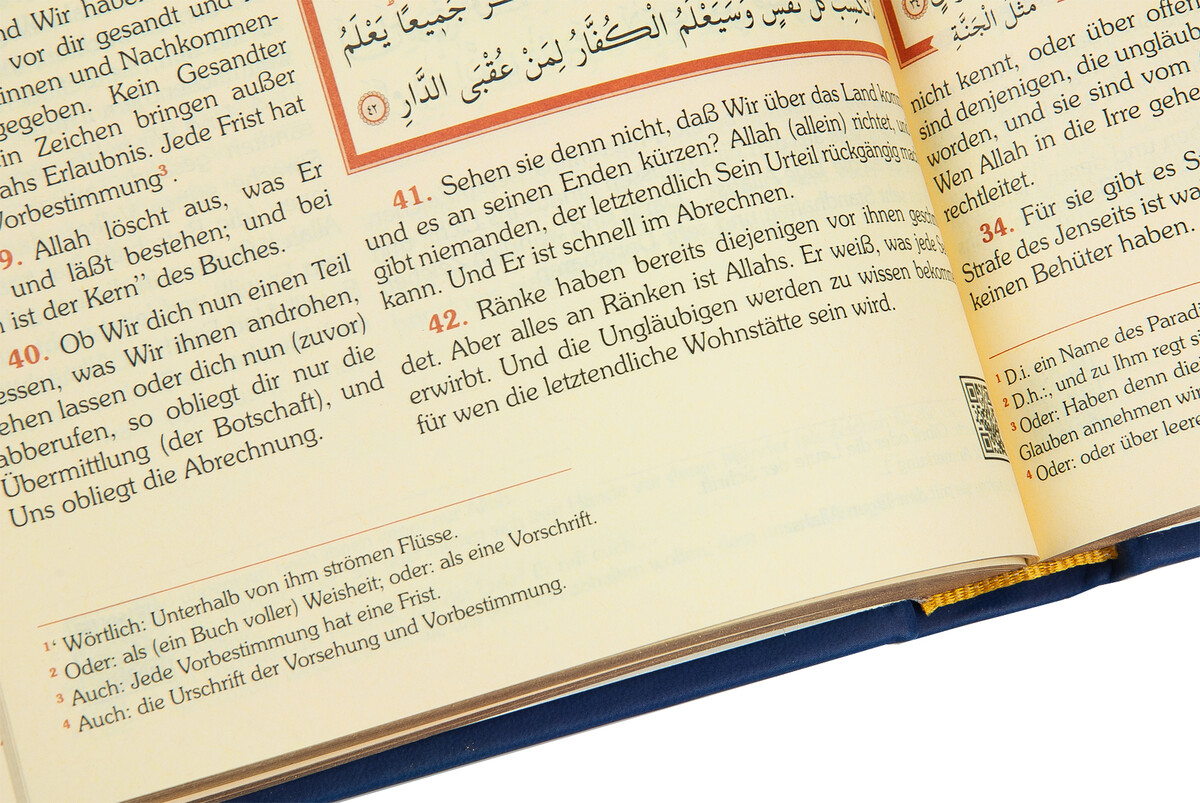 nd Wir habe
vor dir gesandt und i
innen und Nachkommen-
gegeben. Kein Gesandter
in Zeichen bringen außer
ahs Erlaubnis. Jede Frist hat
Vorbestimmung³.
9. Allah löscht aus, was Er
und läßt bestehen; und bei
n ist der Kern” des Buches.
40. Ob Wir dich nun einen Teil
essen, was Wir ihnen androhen,
ehen lassen oder dich nun (zuvor)
abberufen, so obliegt dir nur die
Übermittlung (der Botschaft), und
Uns obliegt die Abrechnung.
جَمِيعًا يَعْلَمُ
تَكْسِبُ كُلُّ نَفْسٍ وَسَيَعْلَمُ الْكُفَّارُ لِمَنْ عُقْبَى الدَّارِ ٤٢
41. Sehen sie denn nicht, daß Wir über das Land komm
und es an seinen Enden kürzen? Allah (allein) richtet, und
gibt niemanden, der letztendlich Sein Urteil rückgängig mac
kann. Und Er ist schnell im Abrechnen.
42. Ränke haben bereits diejenigen vor ihnen geschm
det. Aber alles an Ränken ist Allahs. Er weiß, was jede Se
erwirbt. Und die Ungläubigen werden zu wissen bekomm
für wen die letztendliche Wohnstätte sein wird.
1‘ Wörtlich: Unterhalb von ihm strömen Flüsse.
2 Oder: als (ein Buch voller) Weisheit; oder: als eine Vorschrift.
3 Auch: Jede Vorbestimmung hat eine Frist.
4 Auch: die Urschrift der Vorsehung und Vorbestimmung.
مَثَلُ الْجَنَّةِ
nicht kennt, oder über offen
sind denjenigen, die ungläub
worden, und sie sind vom
Wen Allah in die Irre gehe
rechtleitet.
34. Für sie gibt es S
Strafe des Jenseits ist wa
keinen Behüter haben.
1 D.i. ein Name des Paradi
2 D.h.:, und zu Ihm regt si
3 Oder: Haben denn die
Glauben annehmen wir
4 Oder: oder über leere